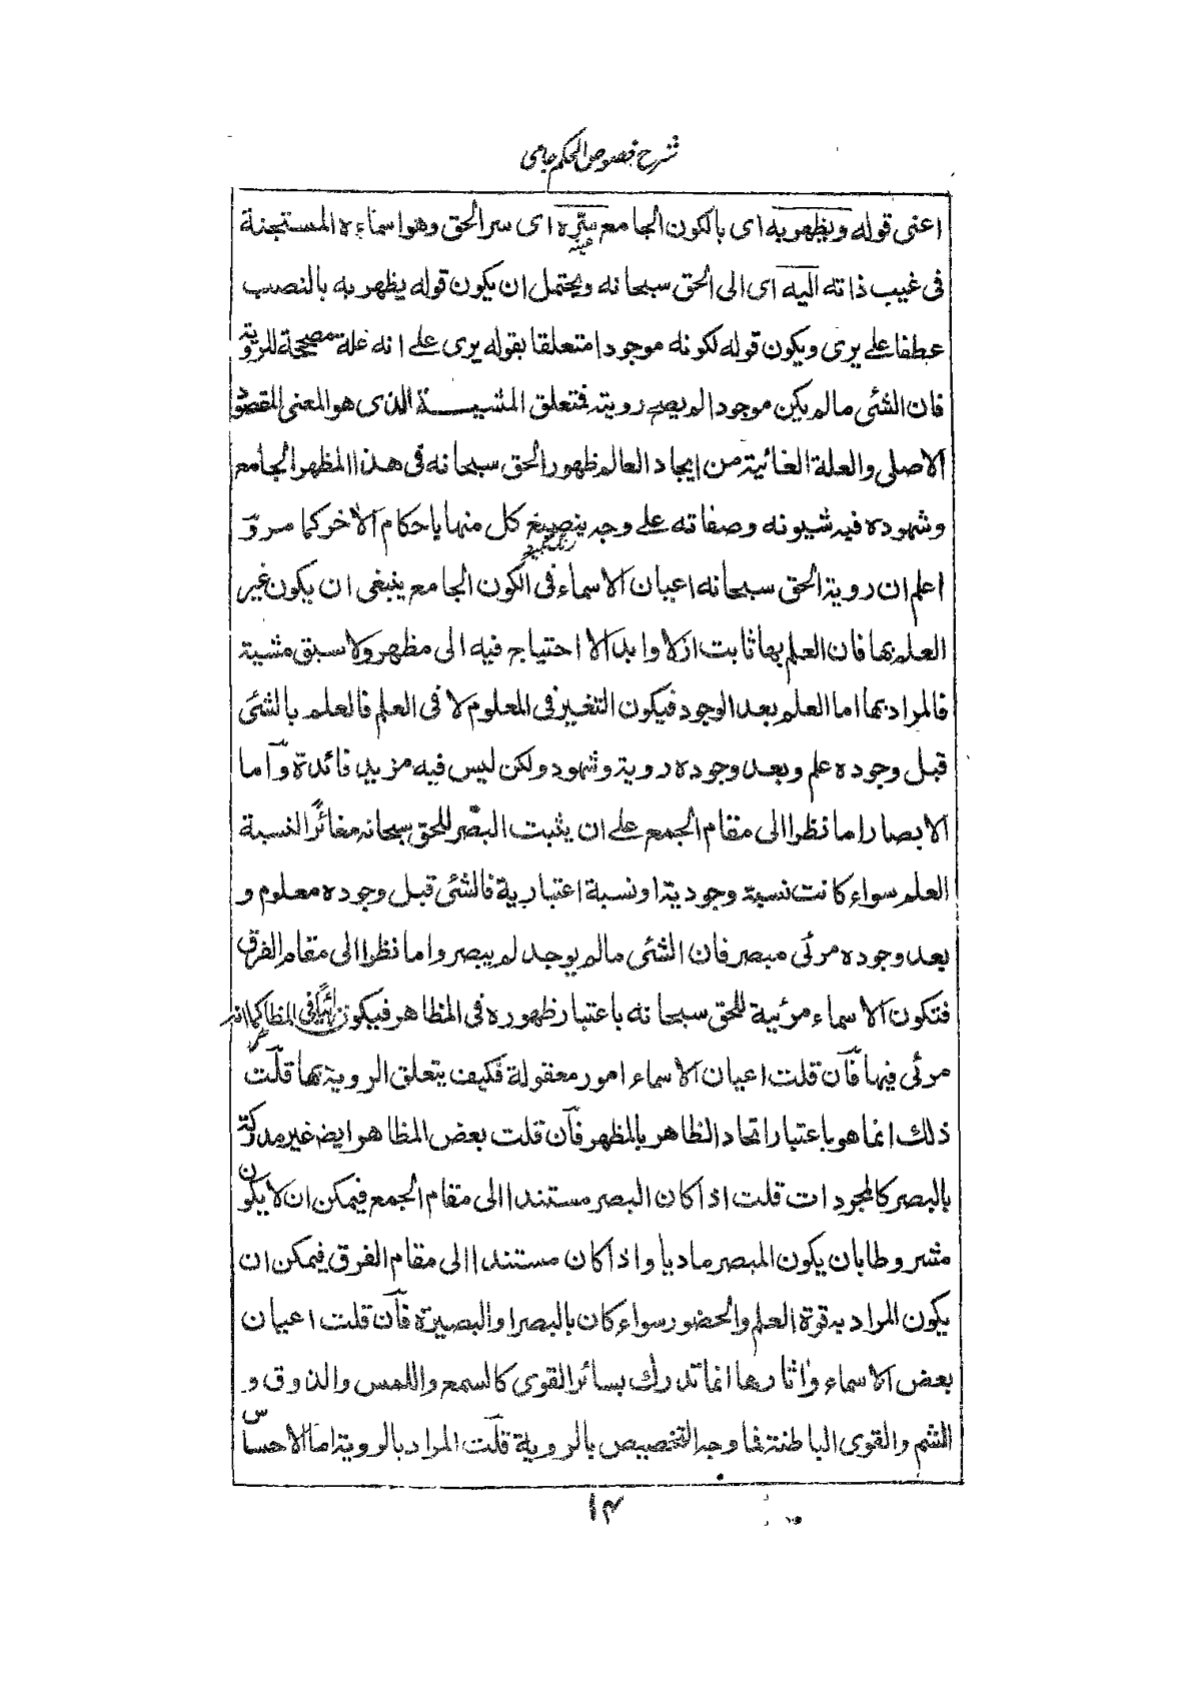 شرح فصوص الحكم جامی
اعنى قوله ويظهر به اى بالكون الجامع سرّه اى سر الحق وهو اسماءه المستجنة
فى غيب ذاته اليه اى الى الحق سبحانه ويحتمل ان يكون قوله يظهر به بالنصب
عطفا على يرى ويكون قوله لكونه موجودا متعلقا بقوله يرى على انه علة مصححة للروية
فان الشئ ما لم يكن موجودا لم يصح رويته فتعلق المشيـــة الذى هو المعنى المقصود
الاصلى والعلة الغائية من ايجاد العالم ظهور الحق سبحانه فى هذا المظهر الجامع
وشهوده فيه شيونه وصفاته على وجه ينصبغ كل منها باحكام الاخر كما مر و
اعلم ان روية الحق سبحانه اعيان الاسماء فى الكون الجامع ينبغى ان يكون غير
العلم بها فان العلم بها ثابت ازلا وابدا لا احتياج فيه الى مظهر ولا سبق مشية
فالمراد بها اما العلم بعد الوجود فيكون التغير فى المعلوم لا فى العلم فالعلم بالشئ
قبل وجوده علم وبعد وجوده روية وشهود ولكن ليس فيه مزيد فائدة واما
الابصار اما نظرا الى مقام الجمع على ان يثبت البصر للحق سبحانه مغائرًا لنسبة
العلم سواء كانت نسبة وجودية او نسبة اعتبارية فالشئ قبل وجوده معلوم و
بعد وجوده مرئى مبصر فان الشئ ما لم يوجد لم يبصر واما نظرا الى مقام الفرق
فتكون الاسماء مرئية للحق سبحانه باعتبار ظهوره فى المظاهر فيكون رائيًا فى المظاهر كما انه
مرئى فيها فان قلت اعيان الاسماء امور معقولة فكيف يتعلق الروية بها قلت
ذلك انما هو باعتبار اتحاد الظاهر بالمظهر فان قلت بعض المظاهر ايض غير مدركة
بالبصر كالمجردات قلت اذا كان البصر مستندا الى مقام الجمع فيمكن ان لا يكون
مشروطا بان يكون المبصر ماديا واذا كان مستندا الى مقام الفرق فيمكن ان
يكون المراد به قوة العلم والحضور سواء كان بالبصر او البصيرة فان قلت اعيان
بعض الاسماء واثارها انما تدرك بسائر القوى كالسمع واللمس والذوق و
الشم والقوى الباطنة فما وجه التخصيص بالروية قلت المراد بالروية اما الاحساس